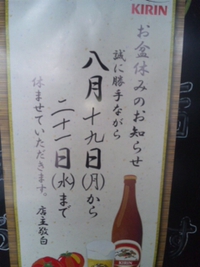 KIRIN
お盆休みのお知らせ
誠に勝手ながら
八月十九日(月)から
二十一日(水)まで
休ませていただきます。
店主敬白